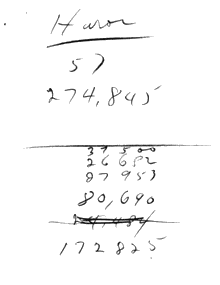 57
274,845
37 500
26 682
27 953
80,690
172825